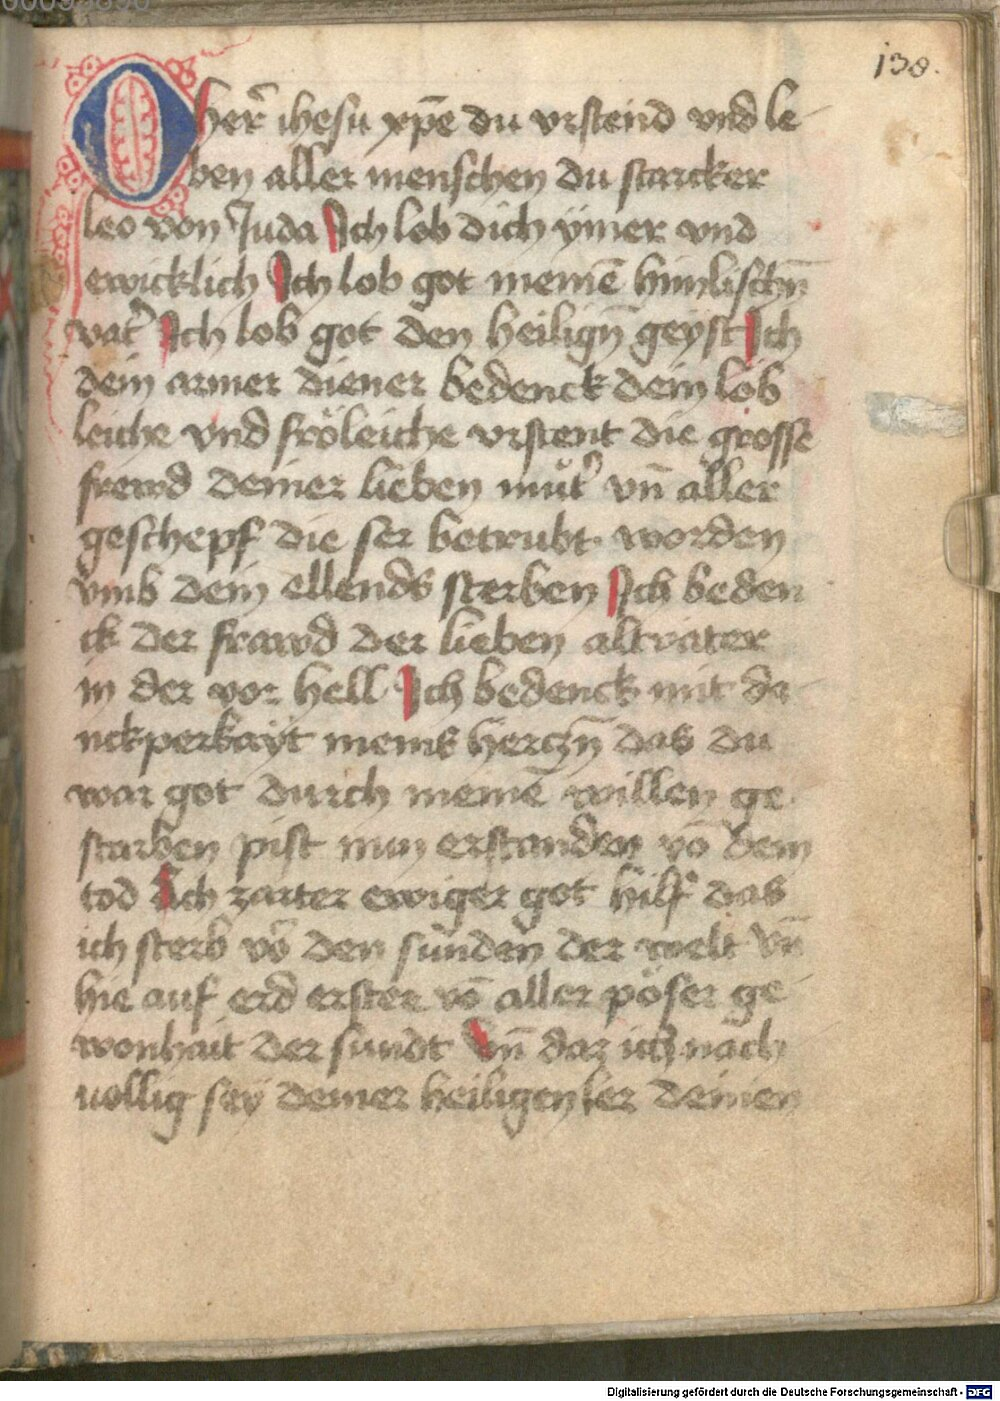 138.
O herr̄ ihesu xp̄e du vrstend vnd le
ben aller menschen du starcker
leo von Juda Ich lob dich ymer vnd
ewicklich Ich lob got meinē himlischn̄
vat̄ Ich lob got den heilign̄ geyst Ich
dein armer diener bedenck dein lob
leiche vnd fröleiche vrstent die grosse
frewd deiner lieben mut̄ vn̄ aller
geschepf die ser betrubt worden
vmb dein ellends sterben Ich beden
ck der frawd der lieben altvater
in der vor hell Ich bedenck mit da
nckperkayt meins herczn̄ das du
war got durch meinē willen ge
storben pist nun erstanden vō dem
tod Ach zarter ewiger got hilf das
ich sterb vō den sunden der welt vn̄
hie auf erd erstee vō aller pöser ge
wonhait der sundt Vn̄ daz ich nach
uollig sey deiner heiligen ler deinen
Digitalisierung gefördert durch die Deutsche Forschungsgemeinschaft - DFG